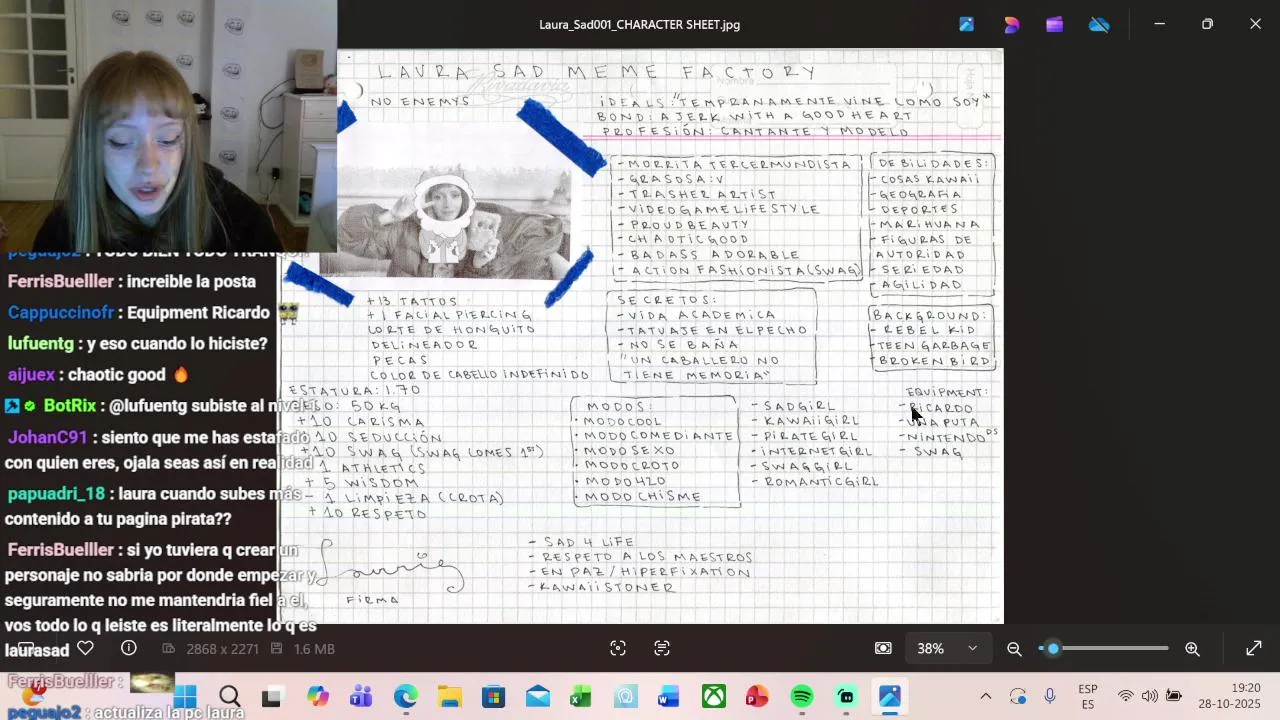 Laura_Sad001_CHARACTER SHEET.jpg
LAURA SAD MEME FACTORY
Rivadavia
Nombre
Hoja N
NO ENEMYS
IDEALS: "TEMPRANAMENTE VINE COMO SOY"
BOND: A JERK WITH A GOOD HEART
PROFESIÓN: CANTANTE Y MODELO
- MORRITA TERCERMUNDISTA
- GRASOSA :V
- TRASHER ARTIST
- VIDEOGAME LIFESTYLE
- PROUD BEAUTY
- CHAOTIC GOOD
- BADASS ADORABLE
- ACTION FASHIONISTA (SWAG)
DEBILIDADES:
- COSAS KAWAII
- GEOGRAFIA
- DEPORTES
- MARIHUANA
- FIGURAS DE
AUTORIDAD
- SERIEDAD
- AGILIDAD
+13 TATTOS
+1 FACIAL PIERCING
CORTE DE HONGUITO
DELINEADOR
PECAS
COLOR DE CABELLO INDEFINIDO
SECRETOS:
- VIDA ACADEMICA
- TATUAJE EN EL PECHO
- NO SE BAÑA
"UN CABALLERO NO
TIENE MEMORIA"
BACKGROUND:
- REBEL KID
- TEEN GARBAGE
- BROKEN BIRD
ESTATURA: 1.70
50 KG
+10 CARISMA
10 SEDUCCIÓN
+10 SWAG (SWAG LOMES 1ST)
1 ATHLETICS
+ 5 WISDOM
- 1 LIMPIEZA (CROTA)
+ 10 RESPETO
MODOS:
- MODO COOL
- MODO COMEDIANTE
- MODO SEXO
- MODO CROTO
- MODO 420
- MODO CHISME
- SADGIRL
- KAWAII GIRL
- PIRATE GIRL
- INTERNET GIRL
- SWAGGIRL
- ROMANTIC GIRL
EQUIPMENT:
- RICARDO
- UNA PUTA
- NINTENDO DS
- SWAG
Laurie
FIRMA
- SAD 4 LIFE
- RESPETO A LOS MAESTROS
- EN PAZ / HIPERFIXATION
- KAWAII STONER
peguajo2 : TODO BIEN TODO TRANQUI
FerrisBuelller : increible la posta
Cappuccinofr : Equipment Ricardo
lufuentg : y eso cuando lo hiciste?
aijuex : chaotic good
BotRix : @lufuentg subiste al nivel 1
JohanC91 : siento que me has estafado
con quien eres, ojala seas así en realidad
papuadri_18 : laura cuando subes más
contenido a tu pagina pirata??
FerrisBuelller : si yo tuviera q crear un
personaje no sabria por donde empezar y
seguramente no me mantendria fiel a el,
vos todo lo q leiste es literalmente lo q es
laurasad
FerrisBuelller :
peguajo2 : actualiza la pc laura
2868 x 2271
1.6 MB
38%
ESP
ES
19:20
28-10-2025